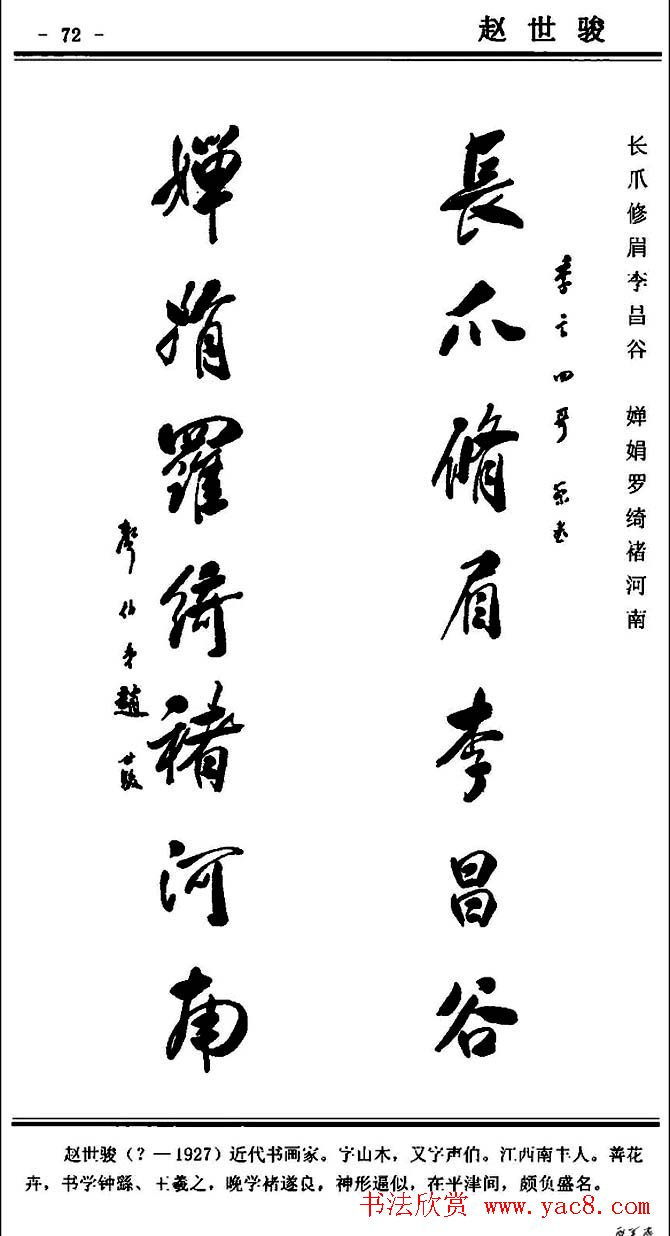 - 72 -
赵世骏
长爪修眉李昌谷 婵娟罗绮褚河南
季言四哥
長爪脩眉李昌谷
嬋娟羅綺褚河南
聲伯弟趙世駿
赵世骏(?—1927)近代书画家。字山木,又字声伯。江西南丰人。善花
卉,书学钟繇、王羲之,晚学褚遂良,神形逼似,在平津间,颇负盛名。
书法欣赏 www.yac8.com